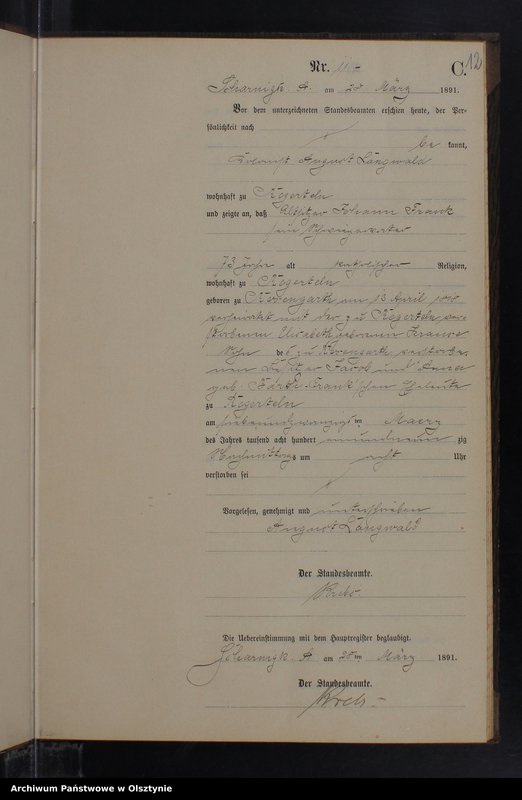 Nr.
C. 12
Scharnigk. A. am 28 März 1891.
Vor dem unterzeichneten Standesbeamten erschien heute, der Per-
sönlichkeit nach
be kannt,
August Längwald
wohnhaft zu Kogerteln
und zeigte an, daß Altsitzer Johann Frank
sein Schwiegervater
73 Jahre alt katholischer Religion,
wohnhaft zu Kogerteln
geboren zu am 13 April
verheirathet mit der zu Kogerteln ver-
storbenen Elisabeth geborenen
Sohn de s zu verstorbe-
nen Besitzer Jacob und
geb. Frank'schen Eheleute
zu Kogerteln
am siebenundzwanzigsten Maerz
des Jahres tausend acht hundert einundneun zig
Nachmittags um acht Uhr
verstorben sei
Vorgelesen, genehmigt und unterschrieben
August Längwald
Der Standesbeamte.
Krebs.
Die Uebereinstimmung mit dem Hauptregister beglaubigt.
Scharnigk. A am 28ten März 1891.
Der Standesbeamte.
Krebs
Archiwum Państwowe w Olsztynie